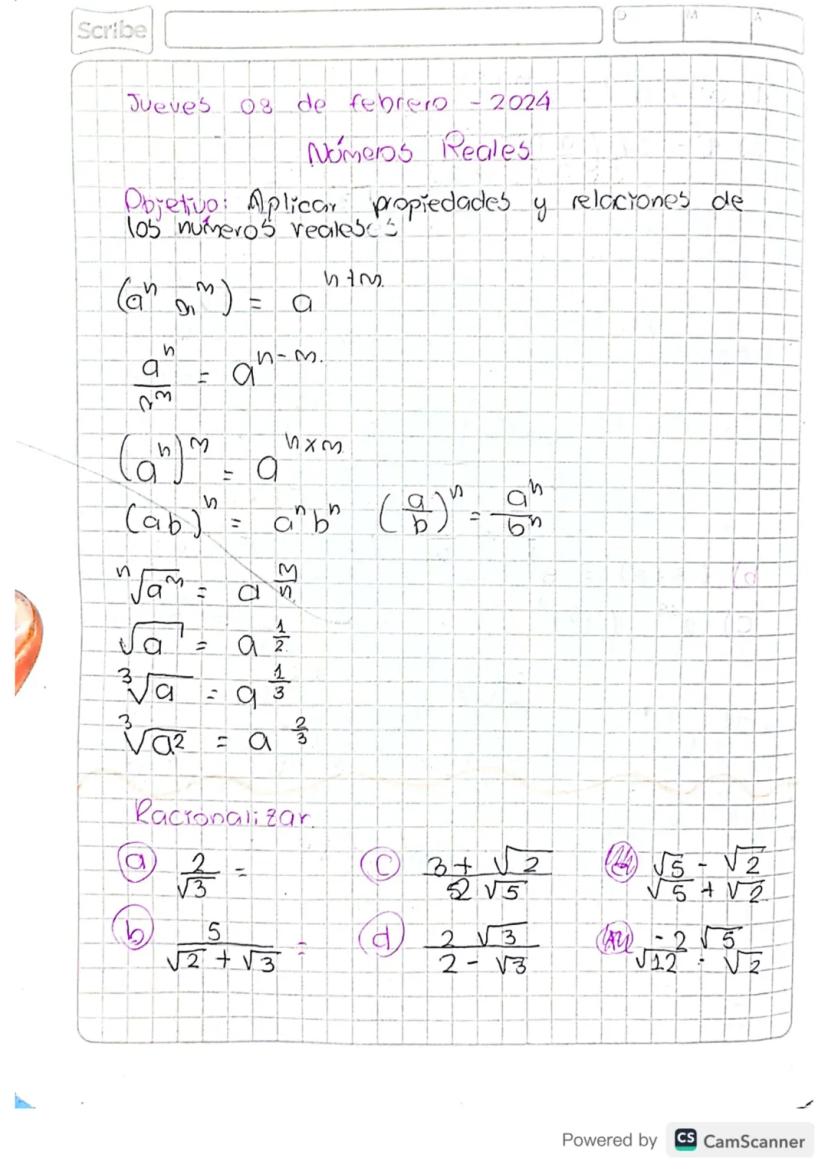 Scribe
D M A
Jueves 08 de febrero - 2024
Números Reales
Objetivo: Aplicar propiedades y relaciones de
los números reales
(aⁿ aᵐ) = aⁿ⁺ᵐ
aⁿ/aᵐ = aⁿ⁻ᵐ
(aⁿ)ᵐ = aⁿˣᵐ
(ab)ⁿ = aⁿbⁿ (a/b)ⁿ = aⁿ/bⁿ
ⁿ√aᵐ = a^(m/n)
√a = a^(1/2)
³√a = a^(1/3)
³√a² = a^(2/3)
Racionalizar
a) 2/√3 = c) (3 + √2)/(2√5) (√5 - √2)/(√5 + √2)
b) 5/(√2 + √3) = d) (2√3)/(2 - √3) (-2√5)/(√12 - √2)
Powered by CS CamScanner